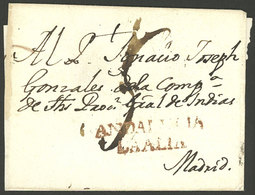 Al P. Ignacio Joseph
Gonzales de la Comp.ª
de Jhs Proc.r Gral de Indias
ANDALUCIA
BAXA
Madrid.